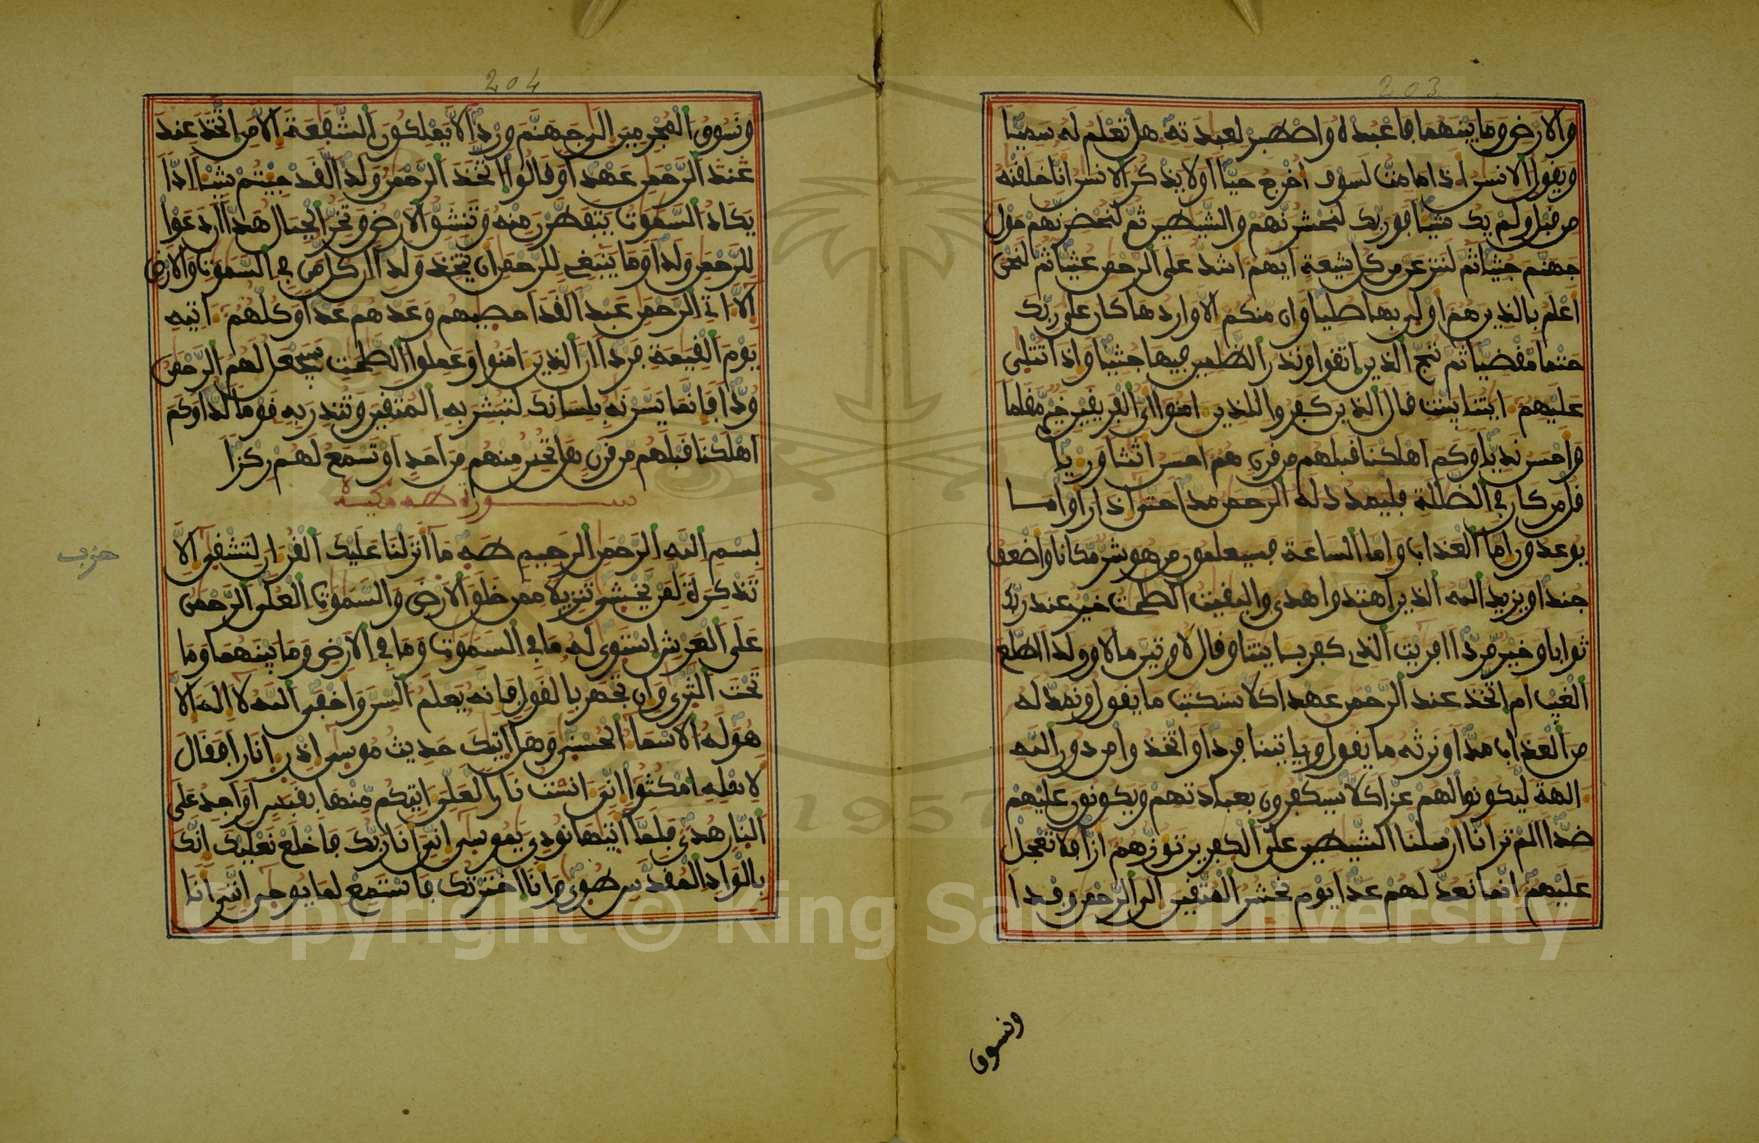 203
والارض وما بينهما فاعبده واصطبر لعبدته هل تعلم له سميا
ويقول الانسن اذا ما مت لسوف اخرج حيا اولا يذكر الانسن انا خلقنه
من قبل ولم يك شيا فوربك لنحشرنهم والشيطين ثم لنحضرنهم حول
جهنم جثيا ثم لننزعن من كل شيعة ايهم اشد على الرحمن عتيا ثم لنحن
اعلم بالذين هم اولى بها صليا وان منكم الا واردها كان على ربك
حتما مقضيا ثم ننجي الذين اتقوا ونذر الظلمين فيها جثيا واذا تتلى
عليهم ايتنا بينت قال الذين كفروا للذين امنوا اي الفريقين خير مقاما
واحسن نديا وكم اهلكنا قبلهم من قرن هم احسن اثثا وريا
قل من كان في الضللة فليمدد له الرحمن مدا حتى اذا راوا ما
يوعدون اما العذاب واما الساعة فسيعلمون من هو شر مكانا واضعف
جندا ويزيد الله الذين اهتدوا هدى والبقيت الصلحت خير عند ربك
ثوابا وخير مردا افريت الذي كفر بايتنا وقال لاوتين مالا وولدا اطلع
الغيب ام اتخذ عند الرحمن عهدا كلا سنكتب ما يقول ونمد له
من العذاب مدا ونرثه ما يقول وياتينا فردا واتخذوا من دون الله
الهة ليكونوا لهم عزا كلا سيكفرون بعبادتهم ويكونون عليهم
ضدا الم تر انا ارسلنا الشيطين على الكفرين تؤزهم ازا فلا تعجل
عليهم انما نعد لهم عدا يوم نحشر المتقين الى الرحمن وفدا
ونسوق
204
ونسوق المجرمين الى جهنم وردا لا يملكون الشفعة الا من اتخذ عند
عند الرحمن عهدا وقالوا اتخذ الرحمن ولدا لقد جيتم شيا ادا
يكاد السموت يتفطرن منه وتنشق الارض وتخر الجبال هدا ان دعوا
للرحمن ولدا وما ينبغي للرحمن ان يتخذ ولدا ان كل من في السموت والارض
الا اتي الرحمن عبدا لقد احصيهم وعدهم عدا وكلهم اتيه
يوم القيمة فردا ان الذين امنوا وعملوا الصلحت سيجعل لهم الرحمن
ودا فانما يسرنه بلسانك لتبشر به المتقين وتنذر به قوما لدا وكم
اهلكنا قبلهم من قرن هل تحس منهم من احد او تسمع لهم ركزا
سورة طه مكية
بسم الله الرحمن الرحيم طه ما انزلنا عليك القران لتشقى الا
حزب
تذكرة لمن يخشى تنزيلا ممن خلق الارض والسموت العلى الرحمن
على العرش استوى له ما في السموت وما في الارض وما بينهما وما
تحت الثرى وان تجهر بالقول فانه يعلم السر واخفى الله لا اله الا
هو له الاسما الحسنى وهل اتيك حديث موسى اذ را نارا فقال
لاهله امكثوا اني انست نارا لعلي اتيكم منها بقبس او اجد على
النار هدى فلما اتيها نودي يموسى اني انا ربك فاخلع نعليك انك
بالواد المقدس طوى وانا اخترتك فاستمع لما يوحى انني انا
1957
Copyright © King Saud University